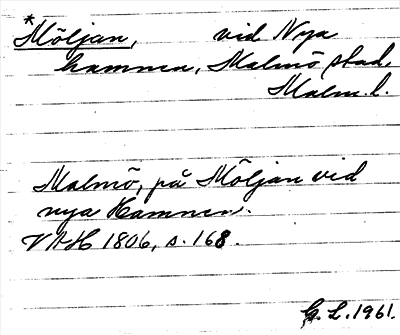 *Möljan, vid Nya
hamnen, Malmö stad,
Malm. l.
Malmö, på Möljan vid
nya Hamnen.
VAH 1806, s. 168.
G. L. 1961.